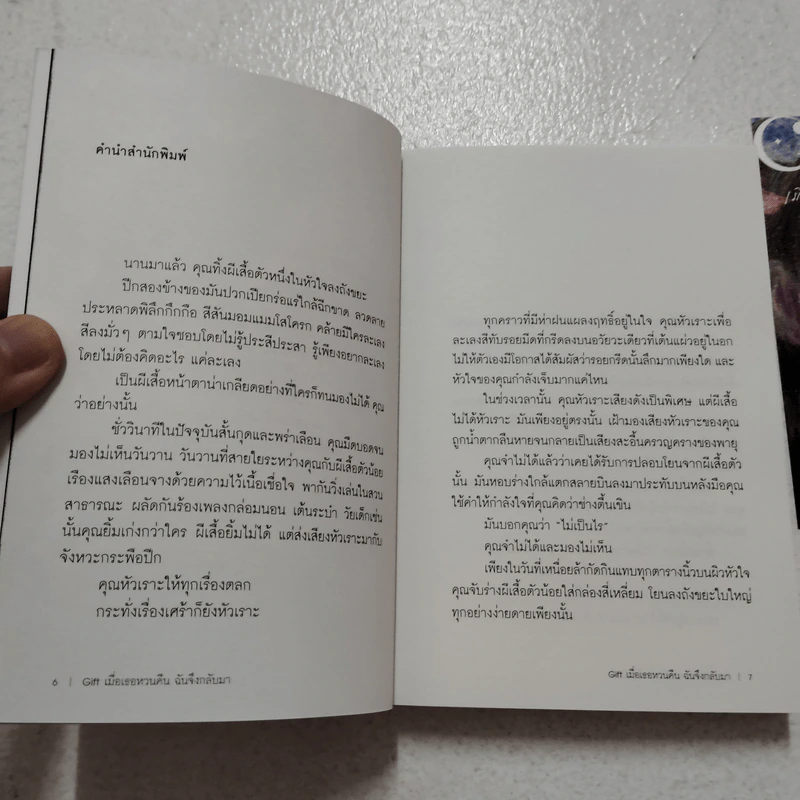 คำนำสำนักพิมพ์
นานมาแล้ว คุณทิ้งผีเสื้อตัวหนึ่งในหัวใจลงถังขยะ
ปีกสองข้างของมันปวกเปียกร่อแร่ใกล้ฉีกขาด ลวดลาย
ประหลาดพิลึกกึกกือ สีสันมอมแมมโสโครก คล้ายมีใครละเลง
สีลงมั่วๆ ตามใจชอบโดยไม่รู้ประสีประสา รู้เพียงอยากละเลง
โดยไม่ต้องคิดอะไร แค่ละเลง
เป็นผีเสื้อหน้าตาน่าเกลียดอย่างที่ใครก็ทนมองไม่ได้ คุณ
ว่าอย่างนั้น
ชั่ววินาทีในปัจจุบันสั้นกุดและพร่าเลือน คุณมืดบอดจน
มองไม่เห็นวันวาน วันวานที่สายใยระหว่างคุณกับผีเสื้อตัวน้อย
เรืองแสงเลือนจางด้วยความไว้เนื้อเชื่อใจ พากันวิ่งเล่นในสวน
สาธารณะ ผลัดกันร้องเพลงกล่อมนอน เต้นระบำ วัยเด็กเช่น
นั้นคุณยิ้มเก่งกว่าใคร ผีเสื้อยิ้มไม่ได้ แต่ส่งเสียงหัวเราะมากับ
จังหวะกระพือปีก
คุณหัวเราะให้ทุกเรื่องตลก
กระทั่งเรื่องเศร้าก็ยังหัวเราะ
6 | Gift เมื่อเธอหวนคืน ฉันจึงกลับมา
ทุกคราวที่มีห่าฝนแผลงฤทธิ์อยู่ในใจ คุณหัวเราะเพื่อ
ละเลงสีทับรอยมีดที่กรีดลงบนอวัยวะเดียวที่เต้นแผ่วอยู่ในอก
ไม่ให้ตัวเองมีโอกาสได้สัมผัสว่ารอยกรีดนั้นลึกมากเพียงใด และ
หัวใจของคุณกำลังเจ็บมากแค่ไหน
ในช่วงเวลานั้น คุณหัวเราะเสียงดังเป็นพิเศษ แต่ผีเสื้อ
ไม่ได้หัวเราะ มันเพียงอยู่ตรงนั้น เฝ้ามองเสียงหัวเราะของคุณ
ถูกน้ำตากลืนหายจนกลายเป็นเสียงสะอื้นครวญครางของพายุ
คุณจำไม่ได้แล้วว่าเคยได้รับการปลอบโยนจากผีเสื้อตัว
นั้น มันหอบร่างใกล้แตกสลายบินลงมาประทับบนหลังมือคุณ
ใช้คำให้กำลังใจที่คุณคิดว่าช่างตื้นเขิน
มันบอกคุณว่า "ไม่เป็นไร"
คุณจำไม่ได้และมองไม่เห็น
เพียงในวันที่เหนื่อยล้ากัดกินแทบทุกตารางนิ้วบนผิวหัวใจ
คุณจับร่างผีเสื้อตัวน้อยใส่กล่องสี่เหลี่ยม โยนลงถังขยะใบใหญ่
ทุกอย่างง่ายดายเพียงนั้น
Gift เมื่อเธอหวนคืน ฉันจึงกลับมา | 7